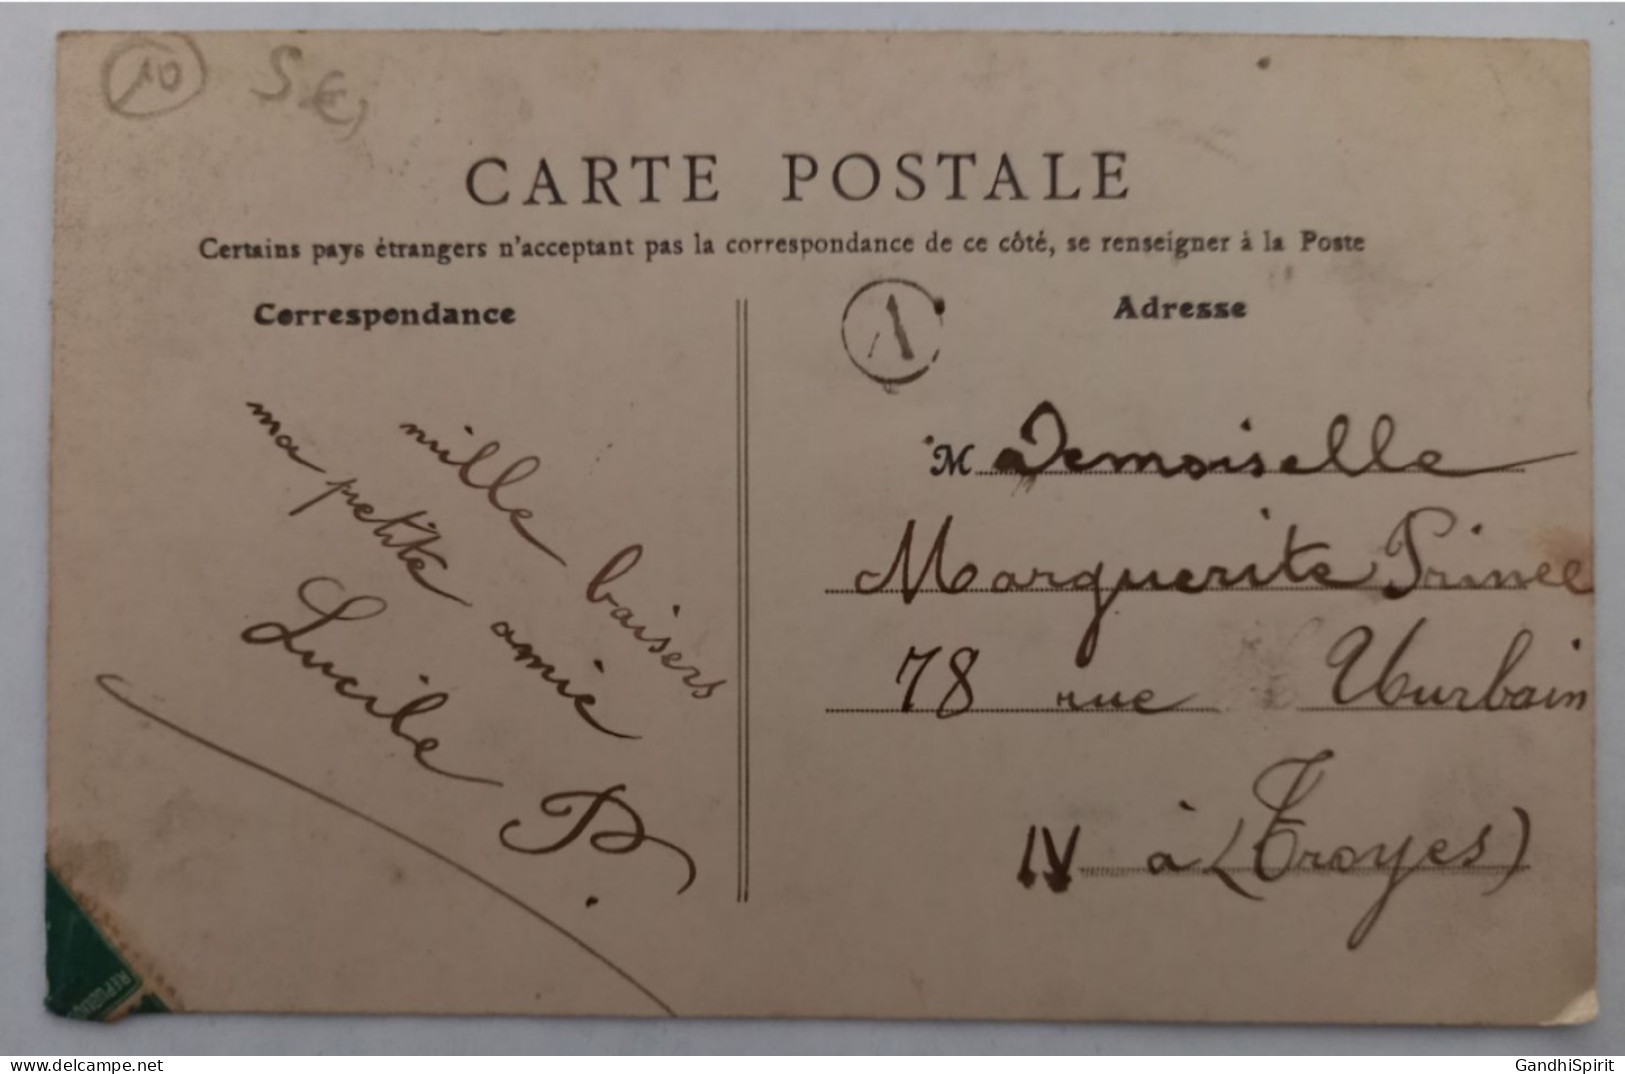 10
5 €,
CARTE POSTALE
Certains pays étrangers n'acceptant pas la correspondance de ce côté, se renseigner à la Poste
Correspondance
mille baisers
ma petite amie
Lucile
P.
Adresse
A
Mademoiselle
Marguerite Prince
78 rue Urbain
IV à (Troyes)
delcampe.net
GandhiSpirit